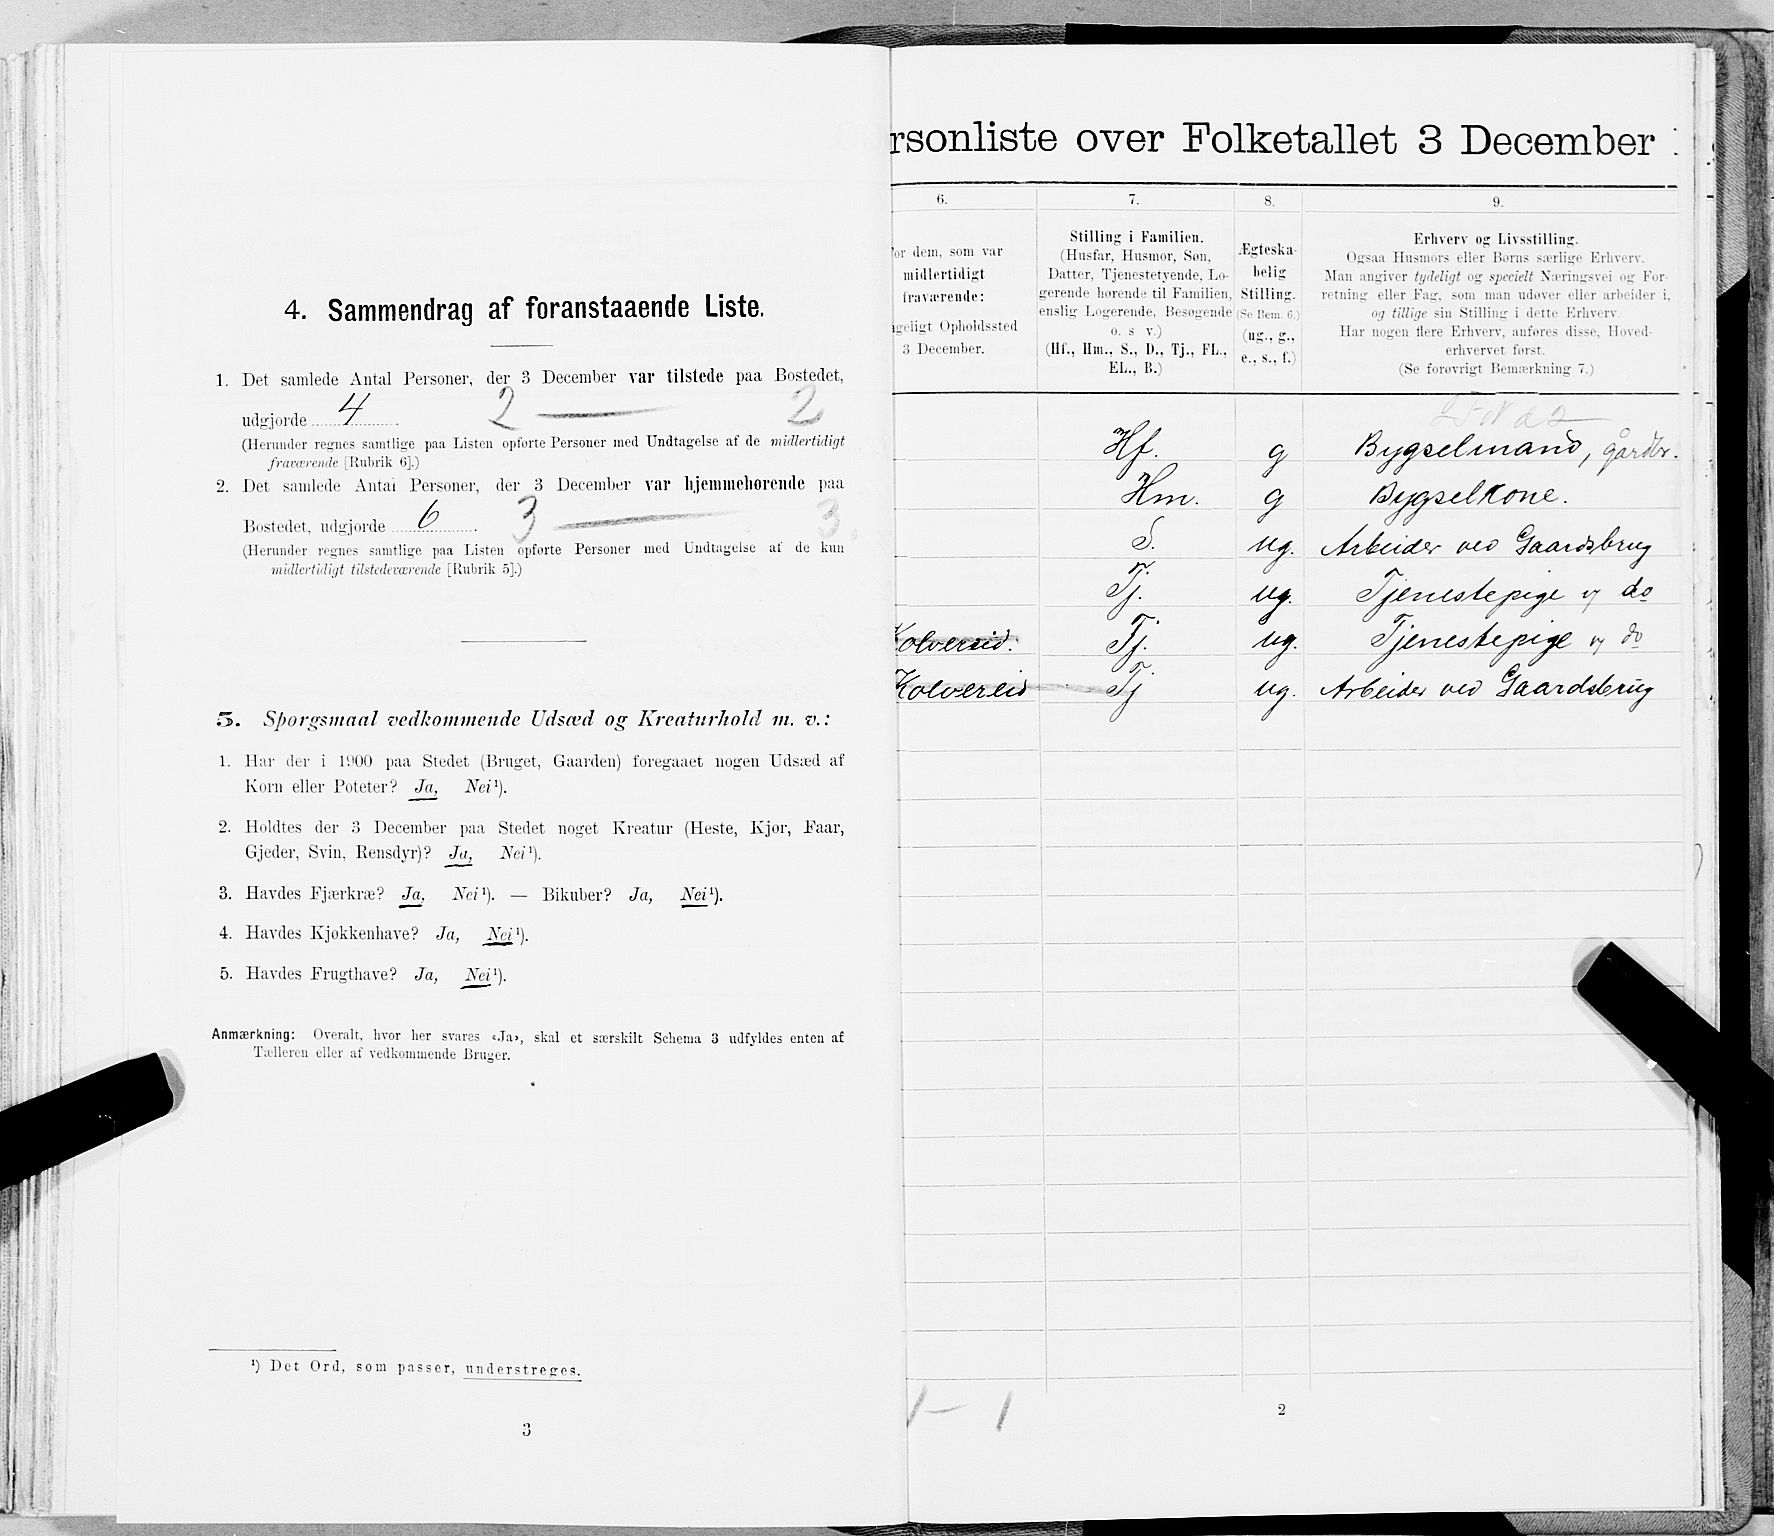 4. Sammendrag af foranstaaende Liste.
1. Det samlede Antal Personer, der 3 December var tilstede paa Bostedet,
udgjorde 4 2 — 2
(Herunder regnes samtlige paa Listen opførte Personer med Undtagelse af de midlertidigt
fraværende [Rubrik 6].)
2. Det samlede Antal Personer, der 3 December var hjemmehørende paa
Bostedet, udgjorde 6. 3 — 3
(Herunder regnes samtlige paa Listen opførte Personer med Undtagelse af de kun
midlertidigt tilstedeværende [Rubrik 5].)
5. Spørgsmaal vedkommende Udsæd og Kreaturhold m. v.:
1. Har der i 1900 paa Stedet (Bruget, Gaarden) foregaaet nogen Udsæd af
Korn eller Poteter? Ja, Nei¹).
2. Holdtes der 3 December paa Stedet noget Kreatur (Heste, Kjør, Faar,
Gjeder, Svin, Rensdyr)? Ja, Nei¹).
3. Havdes Fjærkræ? Ja, Nei¹). — Bikuber? Ja, Nei¹).
4. Havdes Kjøkkenhave? Ja, Nei¹).
5. Havdes Frugthave? Ja, Nei¹).
Anmærkning: Overalt, hvor her svares «Ja», skal et særskilt Schema 3 udfyldes enten af
Tælleren eller af vedkommende Bruger.
¹) Det Ord, som passer, understreges.
3
rsonliste over Folketallet 3 December
6. 7. 8. 9.
or dem, som var
midlertidigt
fraværende:
geligt Opholdssted
3 December.
Stilling i Familien.
(Husfar, Husmor, Søn,
Datter, Tjenestetyende, Lo-
gerende hørende til Familien,
enslig Logerende, Besøgende
o. s v.)
(Hf., Hm., S., D., Tj., FL.,
EL., B.)
Ægteska-
belig
Stilling.
(Se Bem. 6.)
(ug., g.,
e., s., f.)
Erhverv og Livsstilling.
Ogsaa Husmors eller Børns særlige Erhverv.
Man angiver tydeligt og specielt Næringsvei og For-
retning eller Fag, som man udøver eller arbeider i,
og tillige sin Stilling i dette Erhverv.
Har nogen flere Erhverv, anføres disse, Hoved-
erhvervet først.
(Se forøvrigt Bemærkning 7.)
Hf. g Bygselmand, gårdbr.
Hm. g Bygselkone.
S. ug. Arbeider ved Gaardsbrug
Tj. ug. Tjenestepige og do
Kolvereid. Tj. ug. Tjenestepige og do
Kolvereid Tj ug. Arbeider ved Gaardsbrug
1 — 1
2